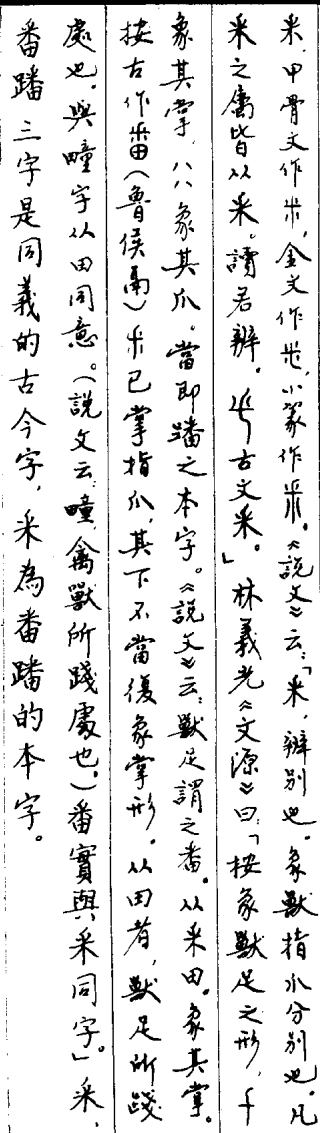 釆，甲骨文作𥝌，金文作𥝌，小篆作釆。《說文》云：「釆，辨別也。象獸指爪分別也。凡
釆之屬皆从釆。讀若辨。𠂒古文釆。」林義光《文源》曰：「按象獸足之形，十
象其掌，八八象其爪。當即蹯之本字。《說文》云：獸足謂之番。从釆田。象其掌。
按古作番（魯侯鬲）釆已掌指爪，其下不當復象掌形。从田者，獸足所踐
處也。與疃字从田同意。（說文云：疃禽獸所踐處也。）番實與釆同字」釆、
番蹯三字是同義的古今字，釆為番蹯的本字。